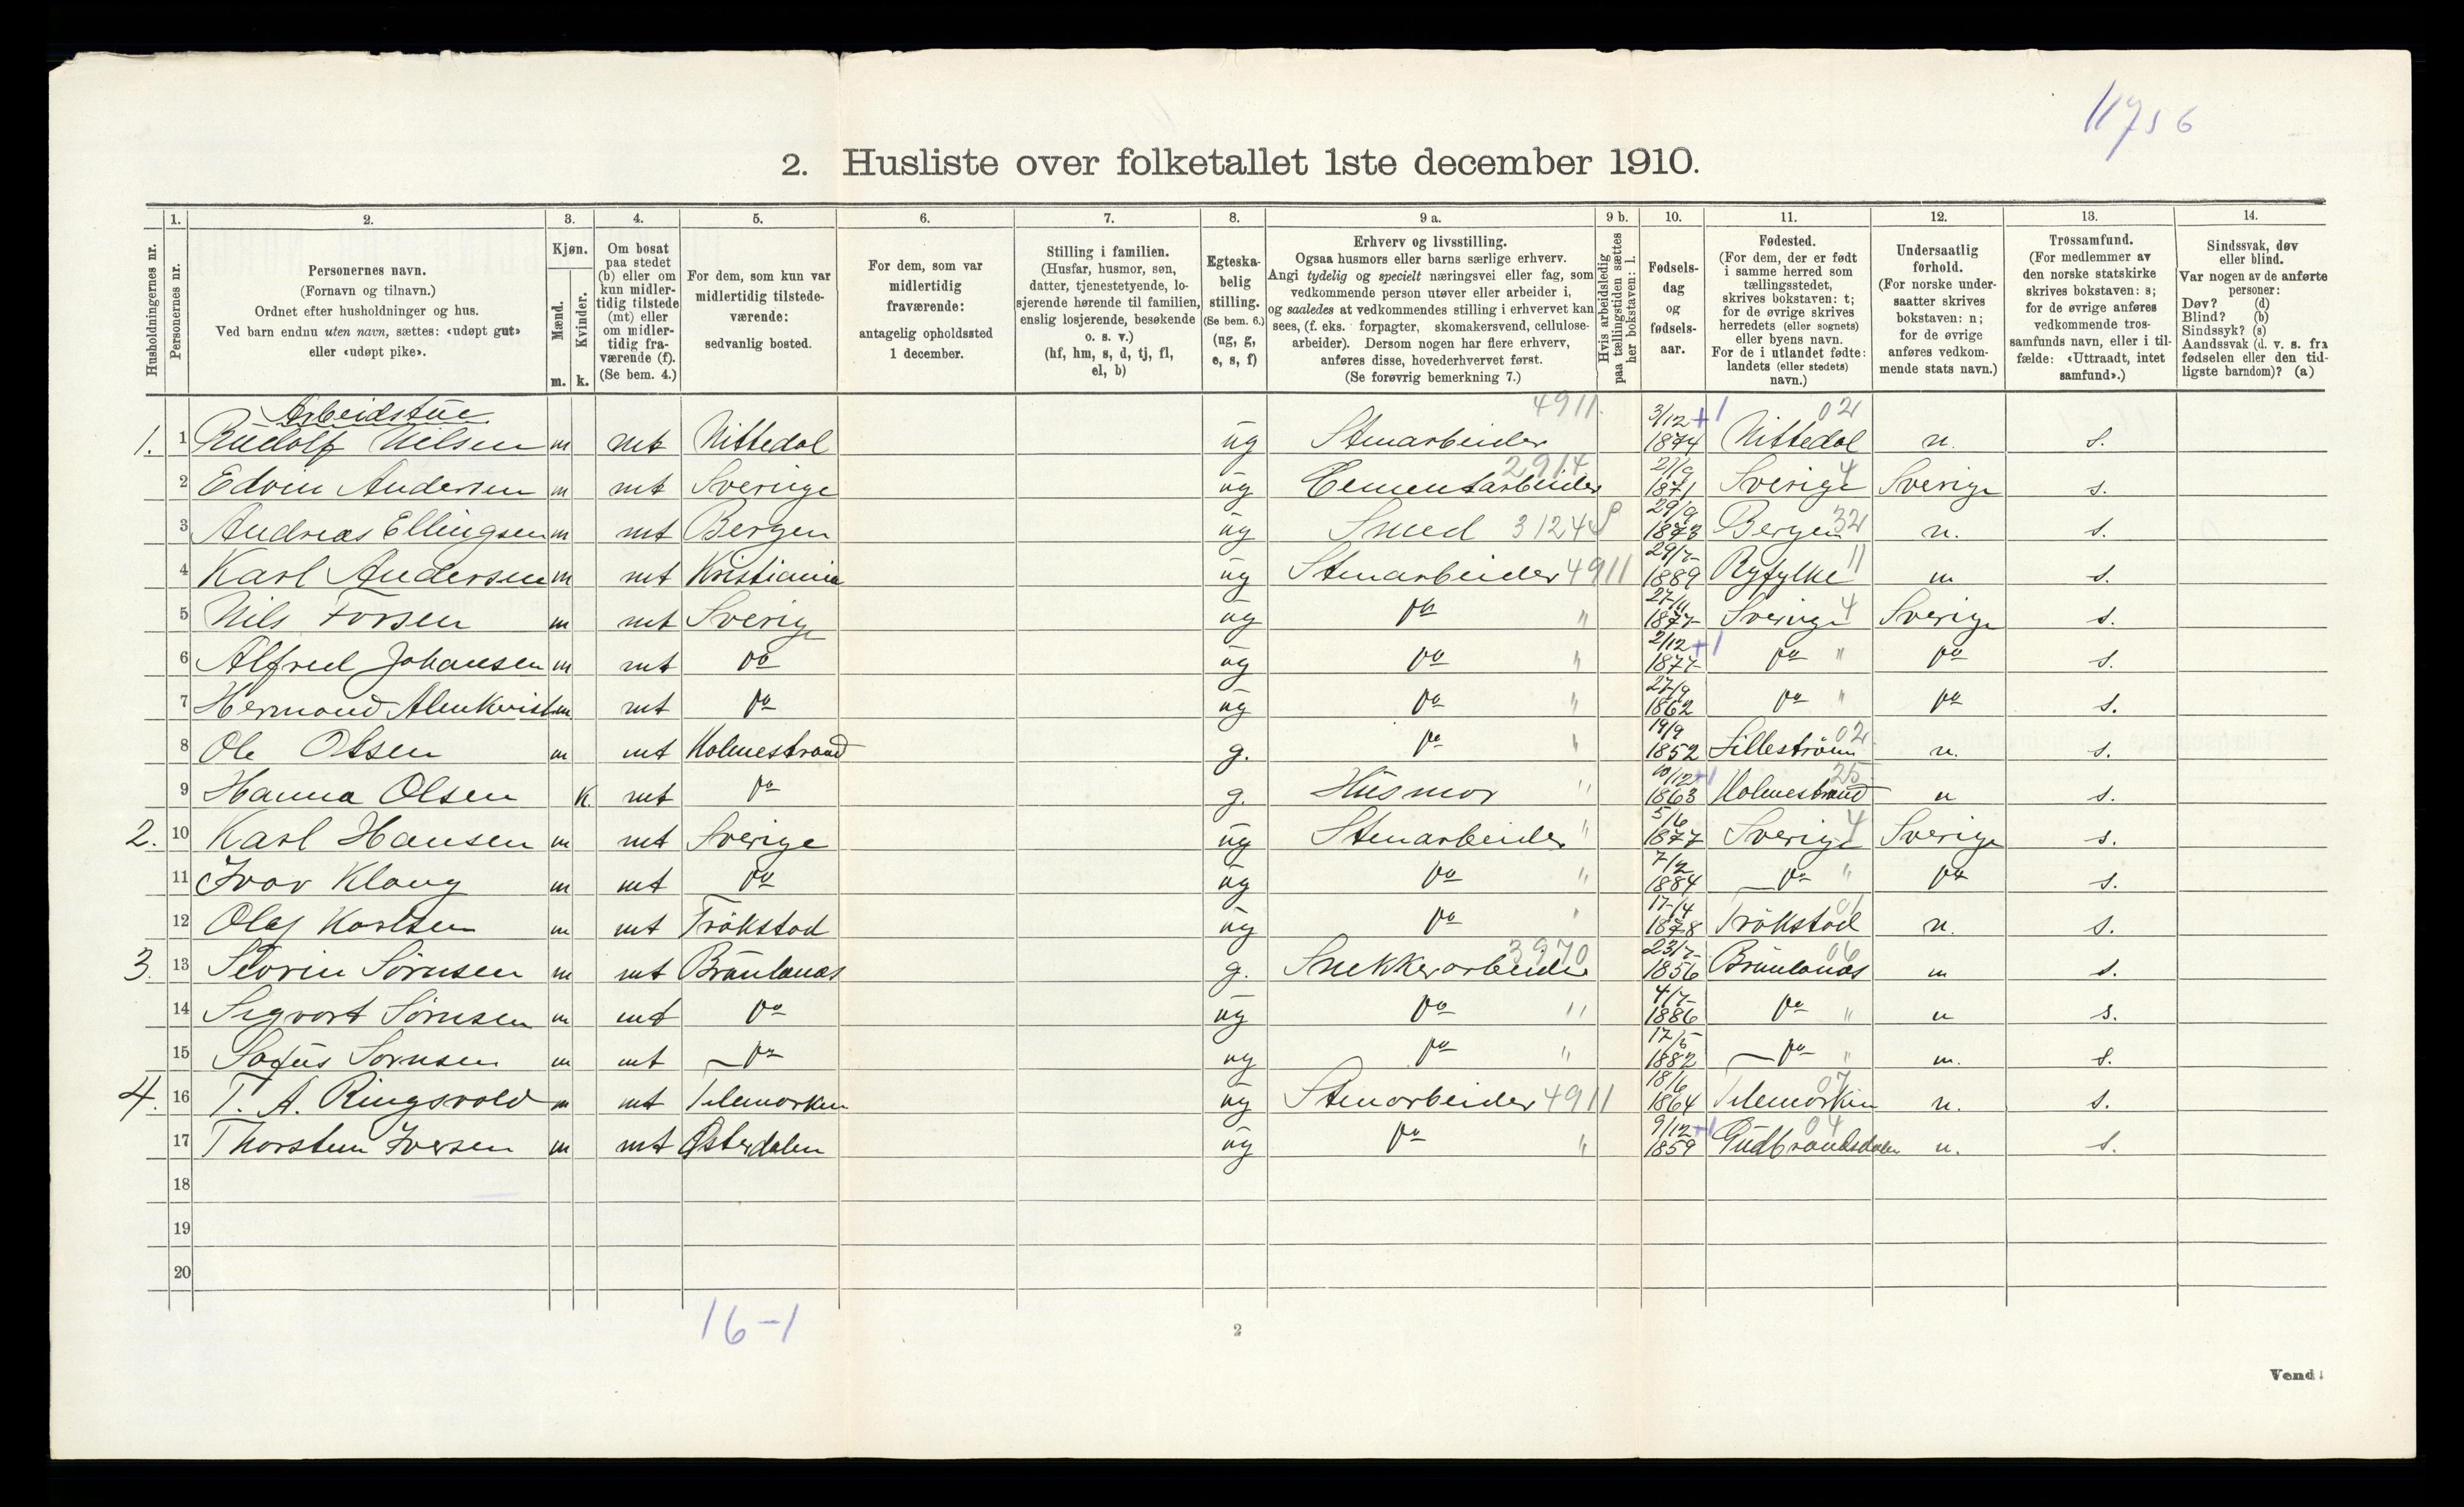 11756
2. Husliste over folketallet 1ste december 1910.
Husholdningernes nr.
1. Personernes nr.
2. Personernes navn. (Fornavn og tilnavn.) Ordnet efter husholdninger og hus. Ved barn endnu uten navn, sættes: «udøpt gut» eller «udøpt pike».
3. Kjøn. Mænd. m. Kvinder. k.
4. Om bosat paa stedet (b) eller om kun midlertidig tilstede (mt) eller om midlertidig fraværende (f). (Se bem. 4.)
5. For dem, som kun var midlertidig tilstedeværende: sedvanlig bosted.
6. For dem, som var midlertidig fraværende: antagelig opholdssted 1 december.
7. Stilling i familien. (Husfar, husmor, søn, datter, tjenestetyende, losjerende hørende til familien, enslig losjerende, besøkende o. s. v.) (hf, hm, s, d, tj, fl, el, b)
8. Egteskabelig stilling. (Se bem. 6.) (ug, g, e, s, f)
9 a. Erhverv og livsstilling. Ogsaa husmors eller barns særlige erhverv. Angi tydelig og specielt næringsvei eller fag, som vedkommende person utøver eller arbeider i, og saaledes at vedkommendes stilling i erhvervet kan sees, (f. eks. forpagter, skomakersvend, cellulosearbeider). Dersom nogen har flere erhverv, anføres disse, hovederhvervet først. (Se forøvrig bemerkning 7.)
9 b. Hvis arbeidsledig paa tællingstiden sættes her bokstaven: l.
10. Fødselsdag og fødselsaar.
11. Fødested. (For dem, der er født i samme herred som tællingsstedet, skrives bokstaven: t; for de øvrige skrives herredets (eller sognets) eller byens navn. For de i utlandet fødte: landets (eller stedets) navn.)
12. Undersaatlig forhold. (For norske undersaatter skrives bokstaven: n; for de øvrige anføres vedkommende stats navn.)
13. Trossamfund. (For medlemmer av den norske statskirke skrives bokstaven: s; for de øvrige anføres vedkommende trossamfunds navn, eller i tilfælde: «Uttraadt, intet samfund».)
14. Sindssvak, døv eller blind. Var nogen av de anførte personer: Døv? (d) Blind? (b) Sindssyk? (s) Aandssvak (d. v. s. fra fødselen eller den tidligste barndom)? (a)
Arbeidstue
1. 1 Rudolf Nilsen m mt Nittedal ug Stenarbeider 4911 3/12 1874 +1 Nittedal 02 n. s.
2 Edvin Andersen m mt Sverige ug Cementarbeider 2914 21/9 1871 Sverige 4 Sverige s.
3 Andreas Ellingsen m mt Bergen ug Smed 3124 29/9 1873 Bergen 32 n. s.
4 Karl Andersen m mt Kristiania ug Stenarbeider 4911 29/7 1889 Ryfylke 11 n s.
5 Nils Forsen m mt Sverig ug do " 27/11 1877 Sverige 4 Sverige s.
6 Alfred Johansen m mt do ug do " 2/12 1877 +1 do " do s.
7 Hermand Almkvist m mt do ug do " 27/9 1862 do " do s.
8 Ole Olsen m mt Holmestrand g. do " 19/9 1852 Lillestrøm 02 n. s.
9 Hanna Olsen k. mt do g. Husmor " 10/12 1863 +1 Holmestrand 25 n s.
2. 10 Karl Hansen m mt Sverige ug Stenarbeider " 5/6 1877 Sverige 4 Sverige s.
11 Ivar Klang m mt do ug do " 7/2 1884 do " do s.
12 Olaf Karlsen m mt Trøkstad ug do " 17/4 1878 Trøkstad 01 n. s.
3. 13 Severin Sørnsen m mt Brunlanas g. Snekkerarbeider 3970 23/7 1856 Brunlanas 06 n s.
14 Sigvart Sørnsen m mt do ug do " 4/7 1886 do " n s.
15 Sofus Sørnsen m mt do ug do " 17/5 1882 do " n. s.
4. 16 T. A. Ringsvold m mt Telemarken ug Stenarbeider 4911 18/6 1864 Telemarken 07 n. s.
17 Thorsten Iversen m mt Østerdalen ug do " 9/12 1859 +1 Gudbrandsdalen 04 n. s.
18
19
20
16-1
2
Vend!